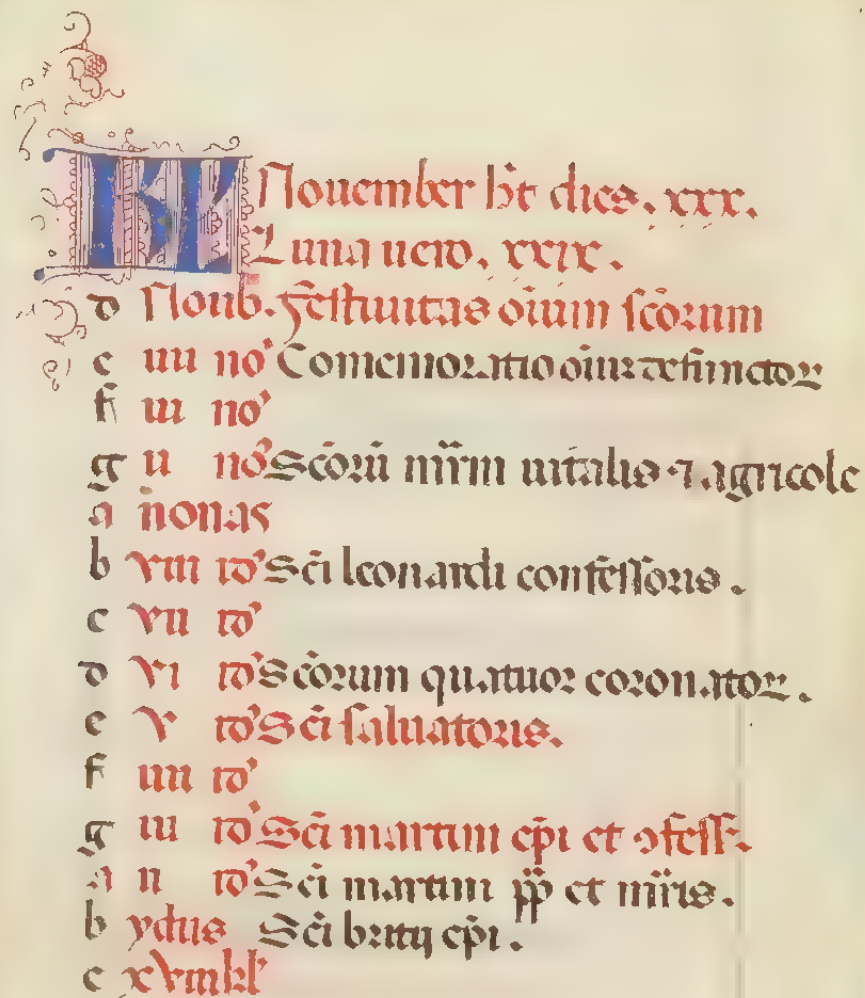 KL Nouember h̄t dies. xxx.
Luna uero. xxix.
d Noub. Festiuitas oīum sc̄orum
e iiii no' Comemoratio oīuꝫ defunctoꝝ
f iii no'
g ii no' Sc̄oꝝū mr̄m uitalis ⁊ agricole
a nonas
b viii id' Sc̄i leonardi confessoris.
c vii id'
d vi id' Sc̄orum quatuor coronatoꝝ.
e v id' Sc̄i saluatoris.
f iiii id'
g iii id' Sc̄i martini ep̄i et ꝯfess.
a ii id' Sc̄i martini pp̄ et mr̄is.
b ydus Sc̄i britij ep̄i.
c xviii kl'